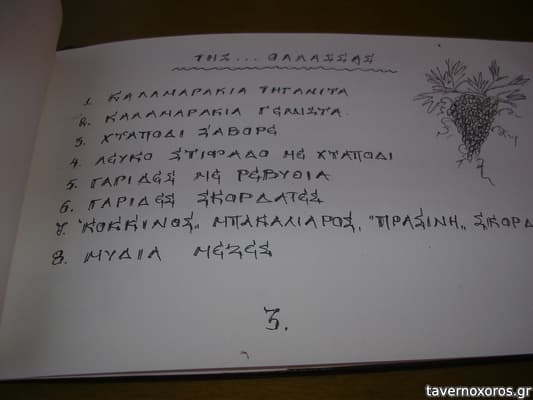 ΤΗΣ... ΘΑΛΑΣΣΑΣ
1. ΚΑΛΑΜΑΡΑΚΙΑ ΤΗΓΑΝΙΤΑ
2. ΚΑΛΑΜΑΡΑΚΙΑ ΓΕΜΙΣΤΑ.
3. ΧΤΑΠΟΔΙ ΣΑΒΟΡΕ
4. ΛΕΥΚΟ ΣΤΙΦΑΔΟ ΜΕ ΧΤΑΠΟΔΙ
5. ΓΑΡΙΔΕΣ ΜΕ ΡΕΒΥΘΙΑ
6. ΓΑΡΙΔΕΣ ΣΚΟΡΔΑΤΕΣ
7. "ΚΟΚΚΙΝΟΣ" ΜΠΑΚΑΛΙΑΡΟΣ, "ΠΡΑΣΙΝΗ" ΣΚΟΡΔ
8. ΜΥΔΙΑ ΜΕΖΕΣ
3.
tavernoxoros.gr